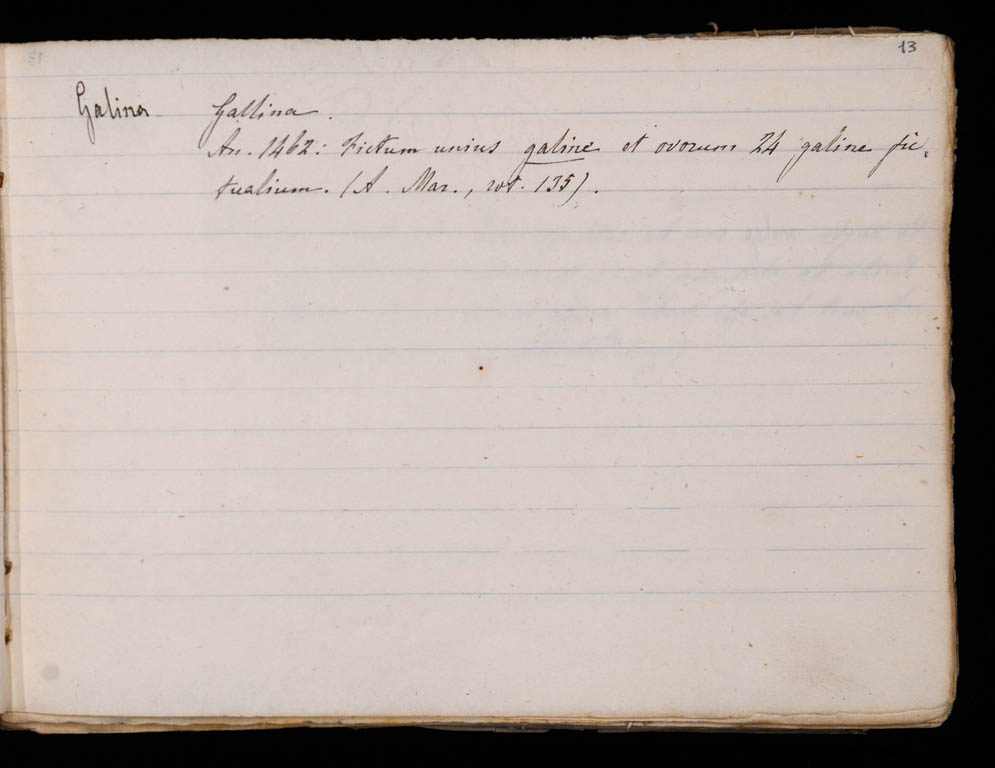 13
Galina Gallina.
An. 1462: Fictum unius galine et ovorum 24 galine fic-
tualium. (A. Mar., rot. 135).